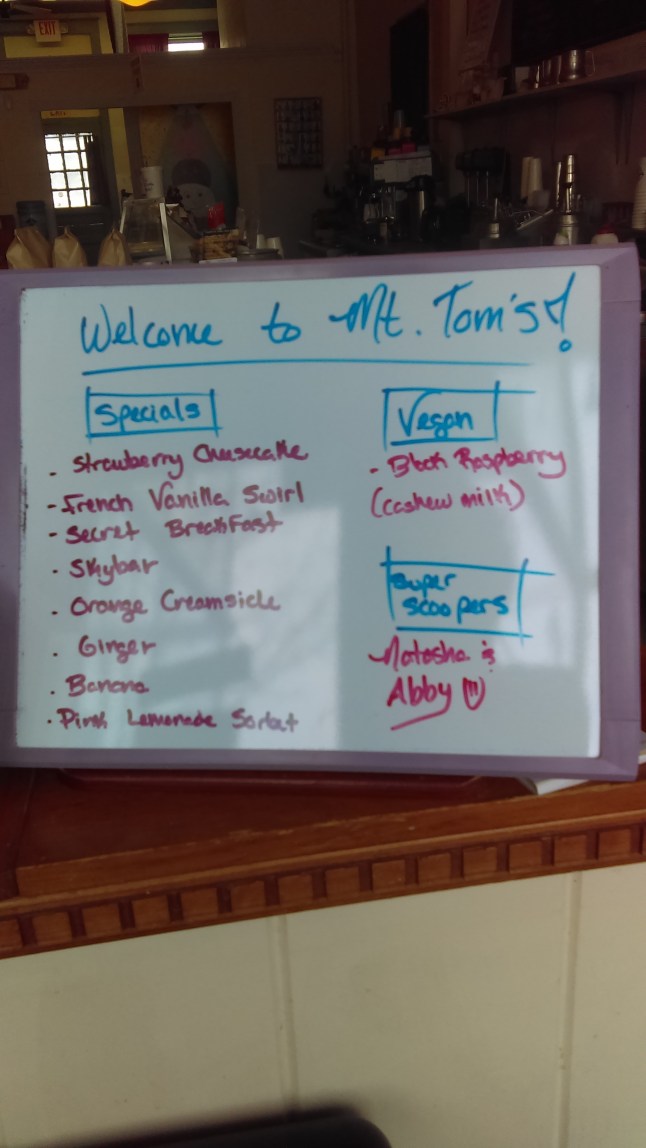 EXIT
Welcome to Mt. Tom's!
Specials
· Strawberry Cheesecake
- French Vanilla Swirl
- Secret Breakfast
· Skybar
· Orange Creamsicle
· Ginger
· Banana
· Pink Lemonade Sorbet
Vegan
- Black Raspberry
(cashew milk)
Super
Scoopers
Natasha &
Abby